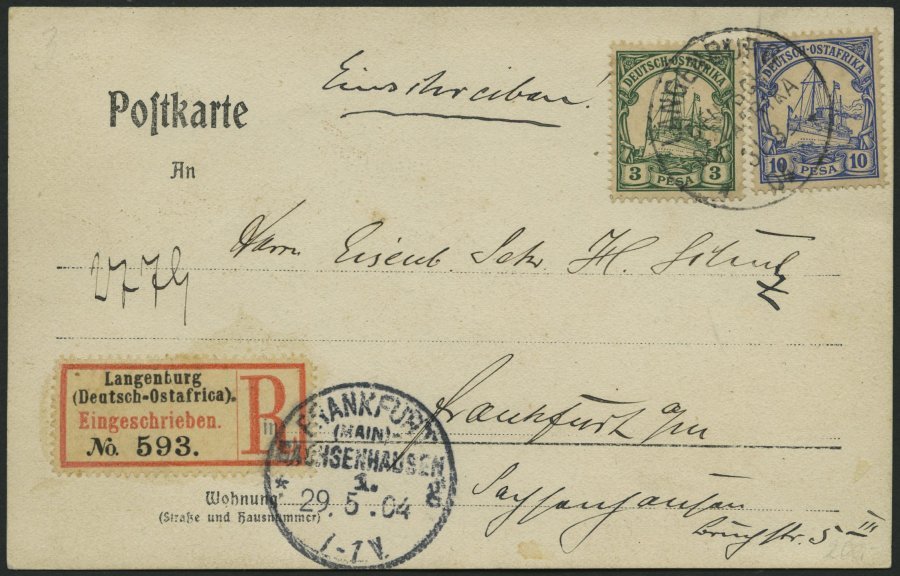 Einschreiben!
DEUTSCH-OSTAFRIKA
3 PESA 3
DEUTSCH-OSTAFRIKA
10 PESA 10
LANGENBURG
Postkarte
An
Herrn Eisenb. Sekr. H.
Langenburg
(Deutsch-Ostafrica).
Eingeschrieben.
No. 593.
R
Frankfurt a/m
FRANKFURT
(MAIN)
SACHSENHAUSEN
1.
* 29.5.04
1-1V.
Sachsenhausen
Wohnung
(Straße und Hausnummer)
Bruchstr. 5 III